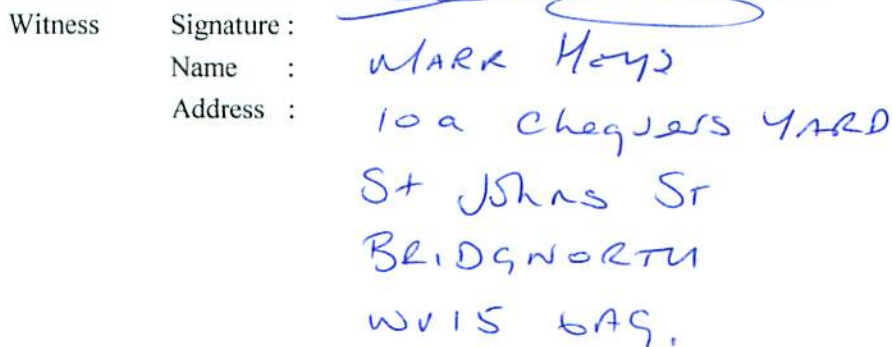 Witness Signature :
Name : MARK Hays
Address : 10a Chequers YARD
St Johns St
BRIDGNORTH
WV15 6AG.